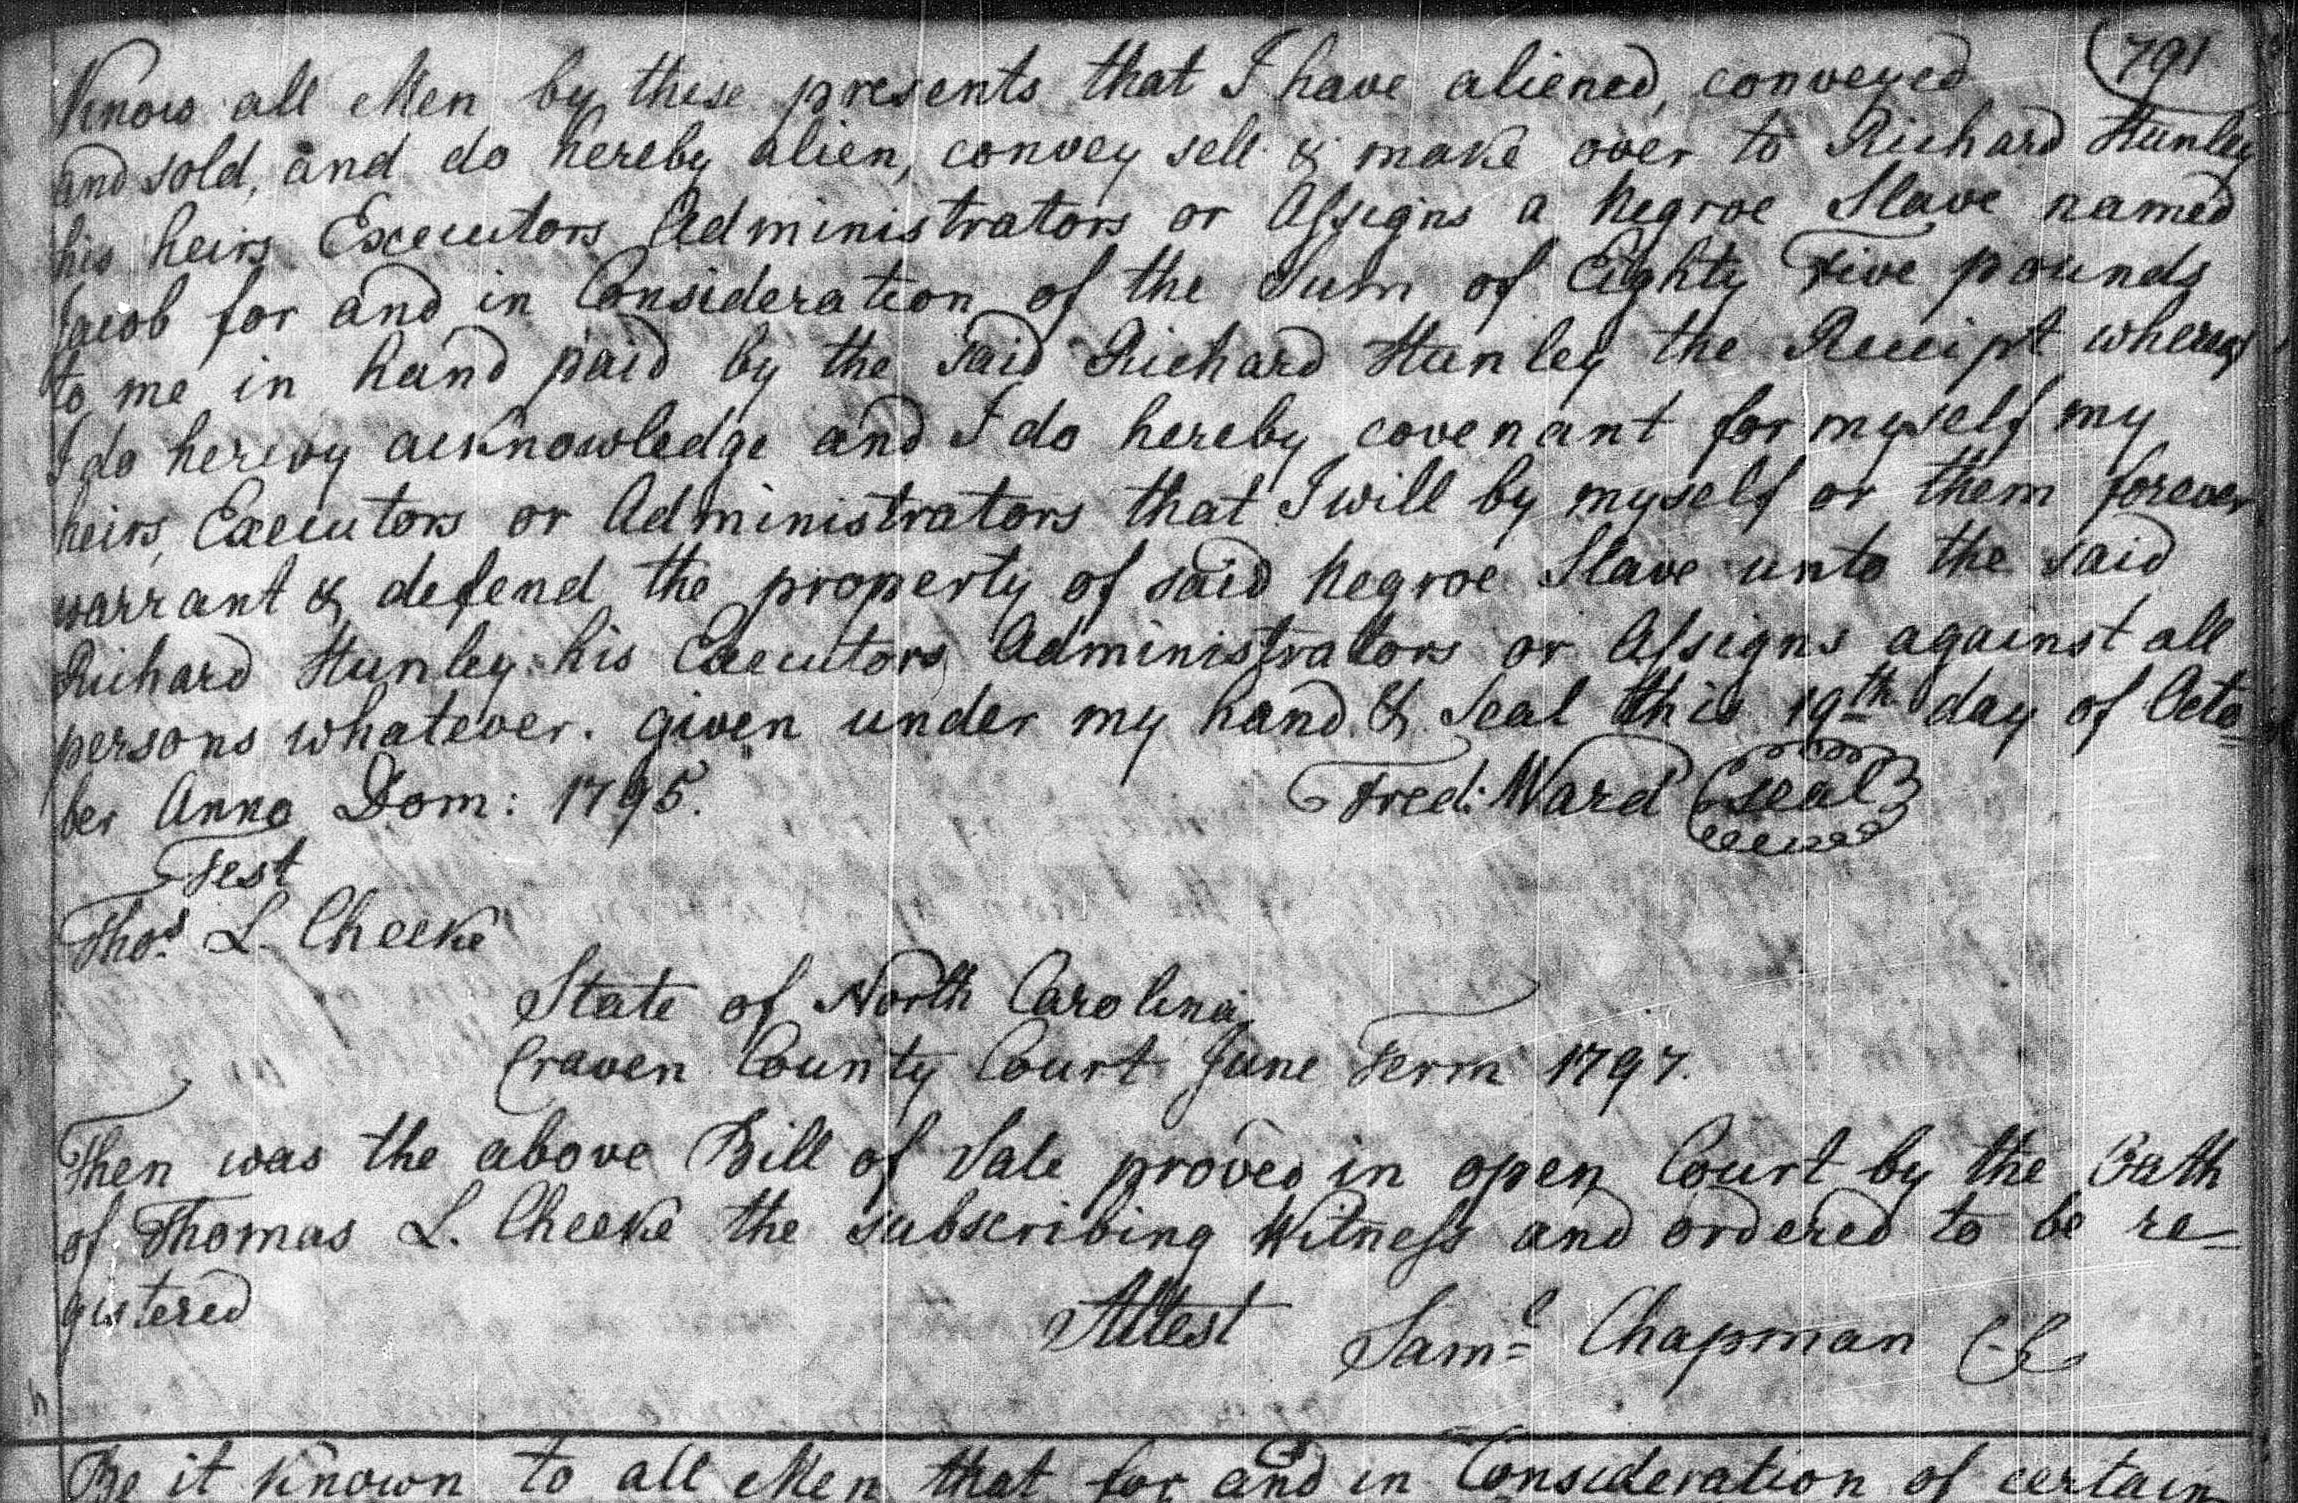 791
Know all Men by these presents that I have aliened, conveyed
and sold, and do hereby alien, convey sell & make over to Richard Hunley
his heirs Executors Administrators or Assigns a Negroe Slave named
Jacob for and in Consideration of the Sum of Eighty Five pounds
to me in hand paid by the said Richard Hunley the Receipt whereof
I do hereby acknowledge and I do hereby covenant for myself my
heirs, Executors or Administrators that I will by myself or them forever
warrant & defend the property of said Negroe Slave unto the said
Richard Hunley his Executors Administrators or Assigns against all
persons whatever. given under my hand & Seal this 19th day of Octo=
ber Anno Dom: 1795. Fred: Ward Seal
Test
Thos. L. Cheeke
State of North Carolina
Craven County Court June Term 1797.
Then was the above Bill of Sale proved in open Court by the Oath
of Thomas L. Cheeke the subscribing Witness and ordered to be re=
gistered
Attest Saml Chapman CC
Be it known to all Men that for and in Consideration of certain